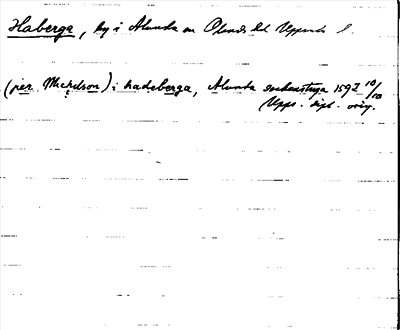 Haberga, by i Alunda sn Olands hd Uppsala l.
(per Michelson) i hadeberga, Alunda sockenstuga 1592 10/10
Upps. dipl. orig.